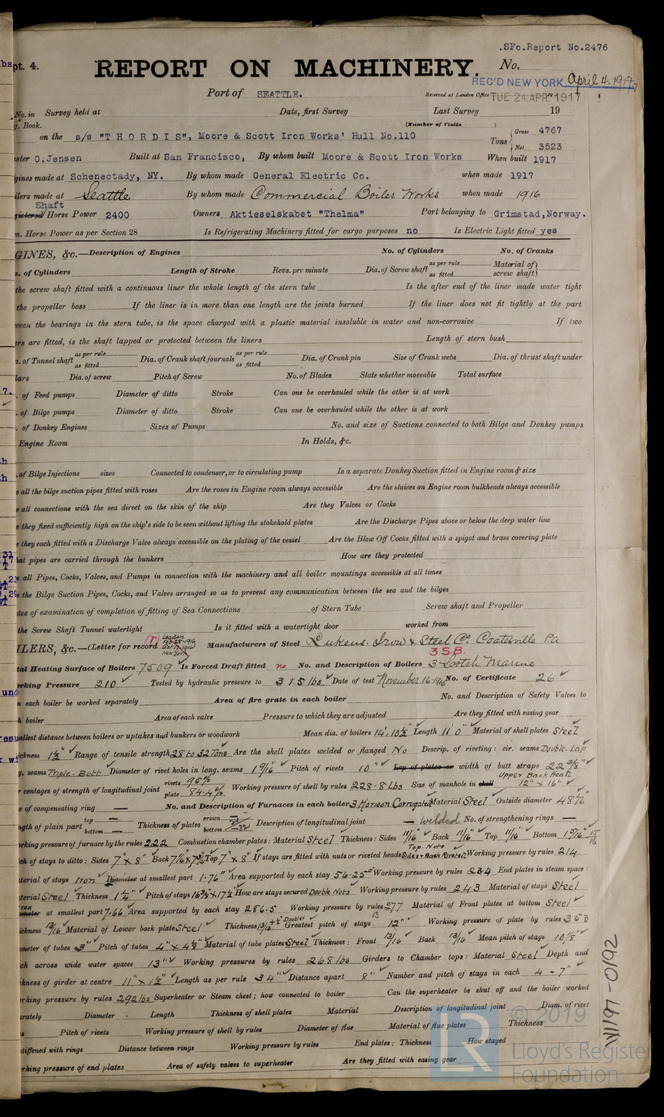 .SFo.Report No.2476
pt. 4.
REPORT ON MACHINERY. No.
REC'D NEW YORK April 4, 1917
Port of SEATTLE. Received at London Office TUE 24 APR 1917
No. in Survey held at Date, first Survey Last Survey 19
Book. (Number of Visits
on the s/s "THORDIS", Moore & Scott Iron Works' Hull No.110 Tons Gross 4767
Net 3523
O.Jensen Built at San Francisco, By whom built Moore & Scott Iron Works When built 1917
gines made at Schenectady, NY. By whom made General Electric Co. when made 1917
ilers made at Seattle By whom made Commercial Boiler Works when made 1916
Shaft
Horse Power 2400 Owners Aktieselskabet "Thelma" Port belonging to Grimstad, Norway.
Horse Power as per Section 28 Is Refrigerating Machinery fitted for cargo purposes no Is Electric Light fitted yes
GINES, &c.—Description of Engines No. of Cylinders No. of Cranks
of Cylinders Length of Stroke Revs. per minute Dia. of Screw shaft as per rule as fitted Material of screw shaft
the screw shaft fitted with a continuous liner the whole length of the stern tube Is the after end of the liner made water tight
the propeller boss If the liner is in more than one length are the joints burned If the liner does not fit tightly at the part
ween the bearings in the stern tube, is the space charged with a plastic material insoluble in water and non-corrosive If two
ers are fitted, is the shaft lapped or protected between the liners Length of stern bush
of Tunnel shaft as per rule as fitted Dia. of Crank shaft journals as per rule as fitted Dia. of Crank pin Size of Crank webs Dia. of thrust shaft under
lars Dia. of screw Pitch of Screw No. of Blades State whether moveable Total surface
of Feed pumps Diameter of ditto Stroke Can one be overhauled while the other is at work
of Bilge pumps Diameter of ditto Stroke Can one be overhauled while the other is at work
of Donkey Engines Sizes of Pumps No. and size of Suctions connected to both Bilge and Donkey pumps
Engine Room In Holds, &c.
of Bilge Injections sizes Connected to condenser, or to circulating pump Is a separate Donkey Suction fitted in Engine room & size
e all the bilge suction pipes fitted with roses Are the roses in Engine room always accessible Are the sluices on Engine room bulkheads always accessible
e all connections with the sea direct on the skin of the ship Are they Valves or Cocks
e they fixed sufficiently high on the ship's side to be seen without lifting the stokehold plates Are the Discharge Pipes above or below the deep water line
e they each fitted with a Discharge Valve always accessible on the plating of the vessel Are the Blow Off Cocks fitted with a spigot and brass covering plate
hat pipes are carried through the bunkers How are they protected
all Pipes, Cocks, Valves, and Pumps in connection with the machinery and all boiler mountings accessible at all times
the Bilge Suction Pipes, Cocks, and Valves arranged so as to prevent any communication between the sea and the bilges
tes of examination of completion of fitting of Sea Connections of Stern Tube Screw shaft and Propeller
the Screw Shaft Tunnel watertight Is it fitted with a watertight door worked from
ILERS, &c.—(Letter for record (r) Manufacturers of Steel Lukens Iron & Steel Co. Coatsville Pa
3 S.B.
tal Heating Surface of Boilers 7509 Is Forced Draft fitted no No. and Description of Boilers 3 Scotch Marine
rking Pressure 210 Tested by hydraulic pressure to 315 lbs Date of test November 16-1916 No. of Certificate 26
n each boiler be worked separately Area of fire grate in each boiler No. and Description of Safety Valves to
h boiler Area of each valve Pressure to which they are adjusted Are they fitted with easing gear
allest distance between boilers or uptakes and bunkers or woodwork Mean dia. of boilers 14' 10½ Length 11' 0" Material of shell plates Steel
ickness 1½" Range of tensile strength 28 to 32 Tons Are the shell plates welded or flanged No Descrip. of riveting: cir. seams Double Lap
seams Triple-Butt Diameter of rivet holes in long. seams 1 9/16 Pitch of rivets 10" Lap of plates or width of butt straps 22 3/8"
centages of strength of longitudinal joint rivets plate 84.4% Working pressure of shell by rules 228.8 Lbs Size of manhole in shell Upper Back Heads 12" x 16"
e of compensating ring — No. and Description of Furnaces in each boiler 3 Morison Corrugated Material Steel Outside diameter
gth of plain part top bottom Thickness of plates crown bottom Description of longitudinal joint — welded No. of strengthening rings —
orking pressure of furnace by the rules 222 Combustion chamber plates: Material Steel Thickness: Sides 11/16" Back 11/16" Top 11/16" Bottom
ch of stays to ditto: Sides 7" x 8" Back Top 7" x 8" If stays are fitted with nuts or riveted heads Working pressure by rules 214
terial of stays Iron Diameter at smallest part 1.76" Area supported by each stay 56.25 Working pressure by rules 284 End plates in steam space:
terial Steel Thickness 1¼" Pitch of stays How are stays secured Double Nuts Working pressure by rules 243 Material of stays Steel
at smallest part 7.66 Area supported by each stay 286.5 Working pressure by rules 277 Material of Front plates at bottom Steel
ickness 13/16 Material of Lower back plate Steel Thickness Greatest pitch of stays 12" Working pressure of plate by rules
meter of tubes 3" Pitch of tubes 4" x 4½ Material of tube plates Steel Thickness: Front 13/16 Back 13/16 Mean pitch of stays
ch across wide water spaces 13" Working pressures by rules 268 lbs Girders to Chamber tops: Material Steel Depth and
kness of girder at centre 11" x 1½" Length as per rule 34" Distance apart 8" Number and pitch of stays in each 4 - 7"
rking pressure by rules 292 lbs Superheater or Steam chest; how connected to boiler Can the superheater be shut off and the boiler worked
rately Diameter Length Thickness of shell plates Material Description of longitudinal joint Diam. of rivet
Pitch of rivets Working pressure of shell by rules Diameter of flue Material of flue plates Thickness
stiffened with rings Distance between rings Working pressure by rules End plates: Thickness How stayed
rking pressure of end plates Area of safety valves to superheater Are they fitted with easing gear
LR
© 2019
Lloyd's Register
Foundation
W1194-0192